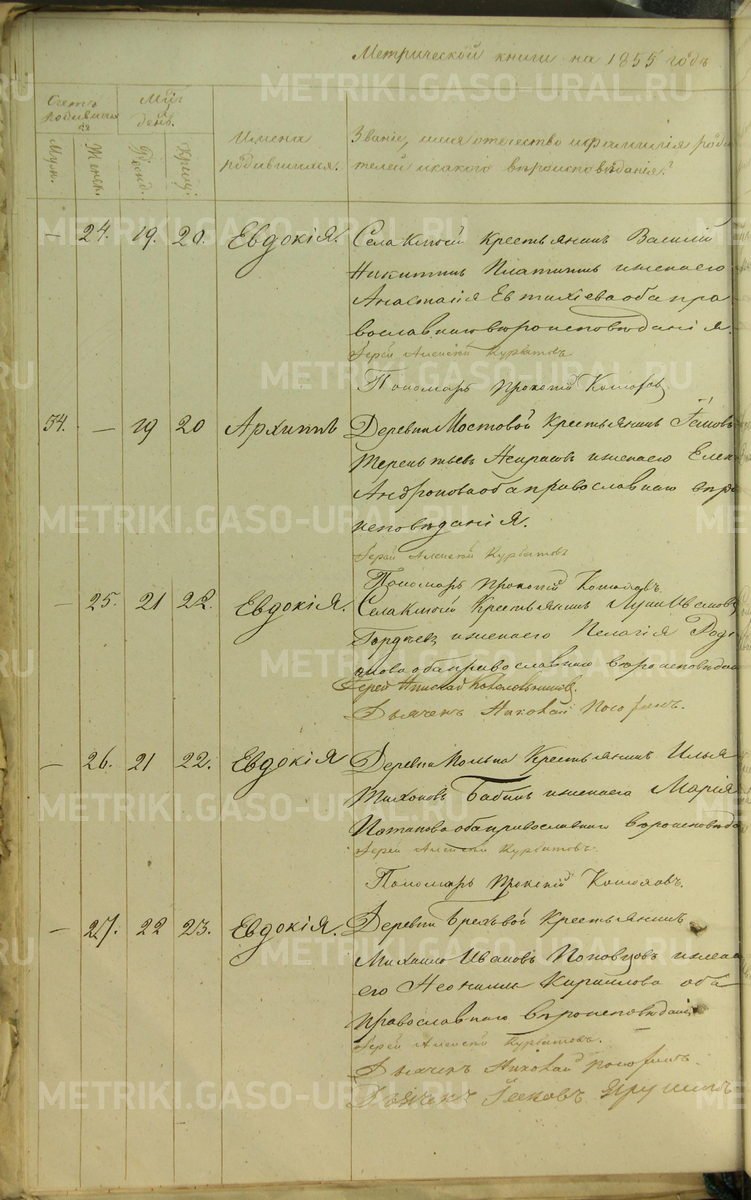 Метрической книги на 1855 годъ
METRIKI.GASO-URAL.RU
Счетъ родившихся
Муж.
Женск.
Мѣс. день.
Рожд.
Крещ.
Имена родившихся.
Званіе, имя отечество и фамилія родителей и какого вѣроисповѣданія.
— 24. 19. 20. Евдокія. Села Крестьянинъ Василій
Никитинъ Платинъ и жена его
Анастасія Евтихіева оба пра
вославнаго вѣроисповѣданія.
Іерей Алексій Курбатовъ
Пономарь Прокопій
34. — 19 20 Архиппъ Деревни Мостовой Крестьянинъ
Терентьевъ и жена его Елен
Андронова оба православнаго вѣро
исповѣданія.
Іерей Алексій Курбатовъ
Пономарь Прокопій
— 25. 21 22. Евдокія. Села Крестьянинъ Ивановъ
Гордѣевъ и жена его Пелагія Роді
онова оба православнаго вѣроисповѣдан
Іерей
Дьячекъ Николай
— 26. 21 22. Евдокія Деревни Крестьянинъ Илья
Тихоновъ Бабинъ и жена его Марія
Потапова оба православнаго вѣроисповѣда
Іерей Алексій Курбатовъ.
Пономарь Прокопій
— 27. 22 23. Евдокія. Деревни Крестьянинъ
Михаилъ Ивановъ и жена
его Неонилла Кириллова оба
православнаго вѣроисповѣданія
Іерей Алексій Курбатовъ.
Дьячекъ Николай